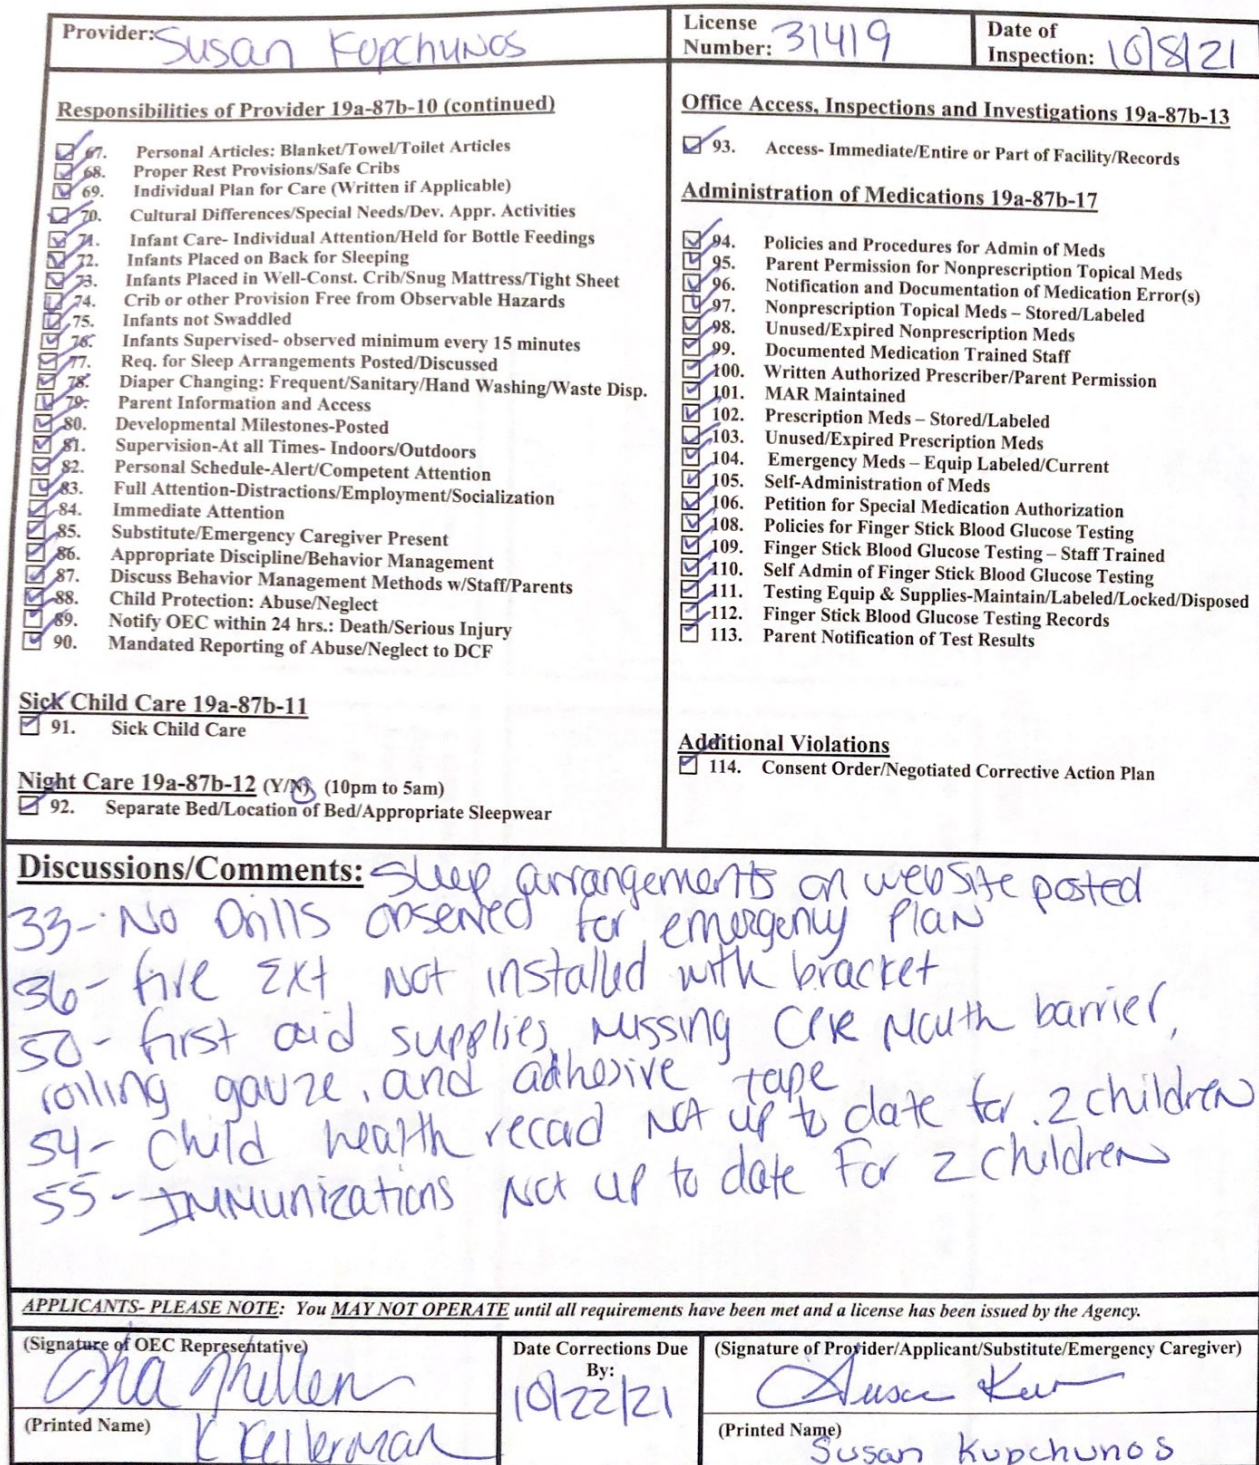 Provider: Susan Kupchunos
License Number: 31419
Date of Inspection: 10/8/21
Responsibilities of Provider 19a-87b-10 (continued)
67. Personal Articles: Blanket/Towel/Toilet Articles
68. Proper Rest Provisions/Safe Cribs
69. Individual Plan for Care (Written if Applicable)
70. Cultural Differences/Special Needs/Dev. Appr. Activities
71. Infant Care- Individual Attention/Held for Bottle Feedings
72. Infants Placed on Back for Sleeping
73. Infants Placed in Well-Const. Crib/Snug Mattress/Tight Sheet
74. Crib or other Provision Free from Observable Hazards
75. Infants not Swaddled
76. Infants Supervised- observed minimum every 15 minutes
77. Req. for Sleep Arrangements Posted/Discussed
78. Diaper Changing: Frequent/Sanitary/Hand Washing/Waste Disp.
79. Parent Information and Access
80. Developmental Milestones-Posted
81. Supervision-At all Times- Indoors/Outdoors
82. Personal Schedule-Alert/Competent Attention
83. Full Attention-Distractions/Employment/Socialization
84. Immediate Attention
85. Substitute/Emergency Caregiver Present
86. Appropriate Discipline/Behavior Management
87. Discuss Behavior Management Methods w/Staff/Parents
88. Child Protection: Abuse/Neglect
89. Notify OEC within 24 hrs.: Death/Serious Injury
90. Mandated Reporting of Abuse/Neglect to DCF
Sick Child Care 19a-87b-11
91. Sick Child Care
Night Care 19a-87b-12 (Y/N) (10pm to 5am)
92. Separate Bed/Location of Bed/Appropriate Sleepwear
Office Access, Inspections and Investigations 19a-87b-13
93. Access- Immediate/Entire or Part of Facility/Records
Administration of Medications 19a-87b-17
94. Policies and Procedures for Admin of Meds
95. Parent Permission for Nonprescription Topical Meds
96. Notification and Documentation of Medication Error(s)
97. Nonprescription Topical Meds – Stored/Labeled
98. Unused/Expired Nonprescription Meds
99. Documented Medication Trained Staff
100. Written Authorized Prescriber/Parent Permission
101. MAR Maintained
102. Prescription Meds – Stored/Labeled
103. Unused/Expired Prescription Meds
104. Emergency Meds – Equip Labeled/Current
105. Self-Administration of Meds
106. Petition for Special Medication Authorization
108. Policies for Finger Stick Blood Glucose Testing
109. Finger Stick Blood Glucose Testing – Staff Trained
110. Self Admin of Finger Stick Blood Glucose Testing
111. Testing Equip & Supplies-Maintain/Labeled/Locked/Disposed
112. Finger Stick Blood Glucose Testing Records
113. Parent Notification of Test Results
Additional Violations
114. Consent Order/Negotiated Corrective Action Plan
Discussions/Comments: Sleep arrangements on website posted
33- No Drills observed for emergency Plan
36- fire Ext Not installed with bracket
50- first aid supplies missing CPR Mouth barrier,
rolling gauze, and adhesive tape
54- Child health record Not up to date for 2 children
55- Immunizations Not up to date For 2 children
APPLICANTS- PLEASE NOTE: You MAY NOT OPERATE until all requirements have been met and a license has been issued by the Agency.
(Signature of OEC Representative)
(Printed Name) K Kellerman
Date Corrections Due By:
10/22/21
(Signature of Provider/Applicant/Substitute/Emergency Caregiver)
(Printed Name) Susan Kupchunos